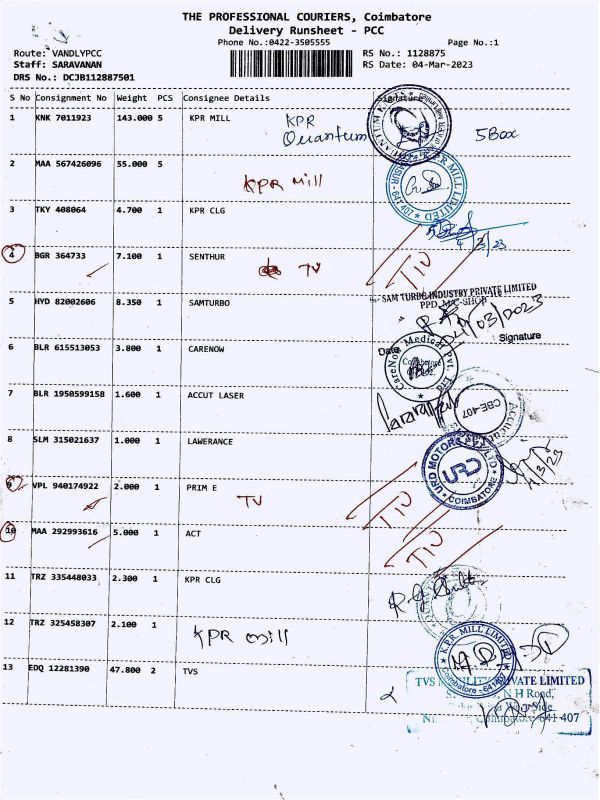 THE PROFESSIONAL COURIERS, Coimbatore
Delivery Runsheet - PCC
Phone No.:0422-3505555 Page No.:1
Route: VANDLYPCC RS No.: 1128875
Staff: SARAVANAN RS Date: 04-Mar-2023
DRS No.: DCJB112887501
S No Consignment No Weight PCS Consignee Details Signature
1 KNK 7011923 143.000 5 KPR MILL KPR
Quantum 5Box
2 MAA 567426096 55.000 5
KPR Mill
K.P.R MILL LIMITED
3 TKY 408064 4.700 1 KPR CLG
4/3/23
4 BGR 364733 7.100 1 SENTHUR
TV TIU
5 HYD 82002606 8.350 1 SAMTURBO
SAM TURBO INDUSTRY PRIVATE LIMITED
PPD, M/C-SHOP
04/03/2023
Date Signature
6 BLR 615513053 3.800 1 CARENOW
CareNow Medical Pvt. Ltd
Coimbatore
7 BLR 1950599158 1.600 1 ACCUT LASER
CBE-407
8 SLM 315021637 1.000 1 LAWERANCE
URD MOTORS PVT LTD
URD
COIMBATORE
4/3/23
9 VPL 940174922 2.000 1 PRIM E
TV TIU
10 MAA 292993616 5.000 1 ACT
TIU
11 TRZ 335448033 2.300 1 KPR CLG
12 TRZ 325458307 2.100 1
KPR mill
K.P.R. MILL LIMITED
Coimbatore - 641407
13 EDQ 12281390 47.800 2 TVS
TVS PRIVATE LIMITED
N H Road,
Coimbatore 641 407